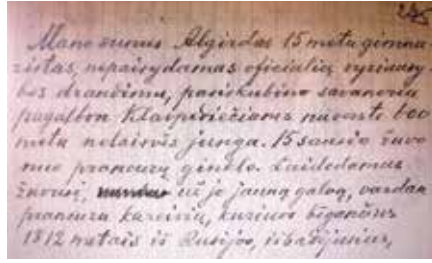 245
Mano sunus Algirdas 15 metų gimna-
zistas, nepaisydamas oficialių vyriausy-
bės draudimų, pasiskubino savanoriu
pagalbon Klaipėdiečiams nuversti 600
metų nelaisvės jungą. 15 sausio žuvo
nuo prancuzų ginklo. Laidodamas
žuvusį, už jo jauną galvą, vardan
prancuzu kareivių, kuriuos bėgančius
1812 metais iš Rusijos, išbadėjusius,